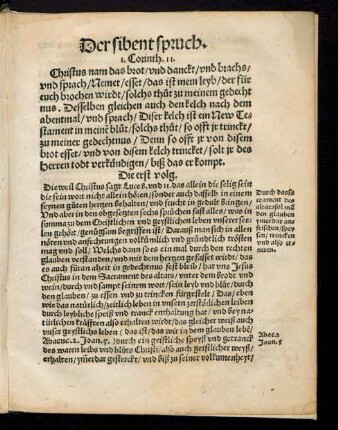 Der sibent spruch.
1. Corinth. 11.
Christus nam das brot/vnd danckt/vnd brachs/
vnd sprach/Nemet/esset/das ist mein leyb/der für
euch brochen wirdt/solchs thüt zu meinem gedecht
nus. Desselben gleichen auch den kelch nach dem
abentmal/vnd sprach/Diser kelch ist ein New Te-
stament in meinē blüt/solchs thüt/so offt jr trinckt/
zu meiner gedechtnus/Denn so offt jr von disem
brot esset/vnd von disem kelch trincket/solt jr des
Herren todt verkündigen/biß das er kompt.
Die erst volg.
Dieweil Christus sagt Luce 8. vnd 11. das allein die selig sein
die sein wort nicht allein hören/sonder auch dasselb in einem
feynen güten hertzen behalten/vnd frucht in gedult bringen/
Vnd aber in den obgesetzten sechs sprüchen fast alles/was in
summa zu dem Christlichen vnd geystlichen leben vnserer see-
len gehöt/genügsam begriffen ist/Darauß man sich in allen
nöten vnd anfechtungen volkümlich vnd gründtlich trösten
mag vnd soll/Welchs dann so es ein mal durch den rechten
glauben verstanden/vnd mit dem hertzen gefasset wirdt/das
es auch füran alzeit in gedechtnus fest bleib/hat vns Jesus
Christus in dem Sacrament des altars/vnter dem brodt vnd
wein/durch vnd sampt seinem wort/sein leyb vnd blüt/durch
den glauben/zu essen vnd zu trincken fürgestelt/Das/eben
wie das natürlich/zeitlich leben in vnsern zerstörlichen leiben
durch leybliche speiß vnd tranck enthaltung hat/vnd bey na-
türlichen krefften also erhalten wirdt/das gleicher weiß auch
vnser geystlichs leben (das ist/das wir in dem glauben lebē/
Abacuc. 2. Joan. 5.) durch ein geistliche speys vnd getranck
des waren leibs vnd blüts Christi/also auch geistlicher weyß/
erhalten/ymerdar gesterckt/vnd biß zu seiner volkumenheyt/
Durch das sa
crament des
Abac. 2.
Joan. 5